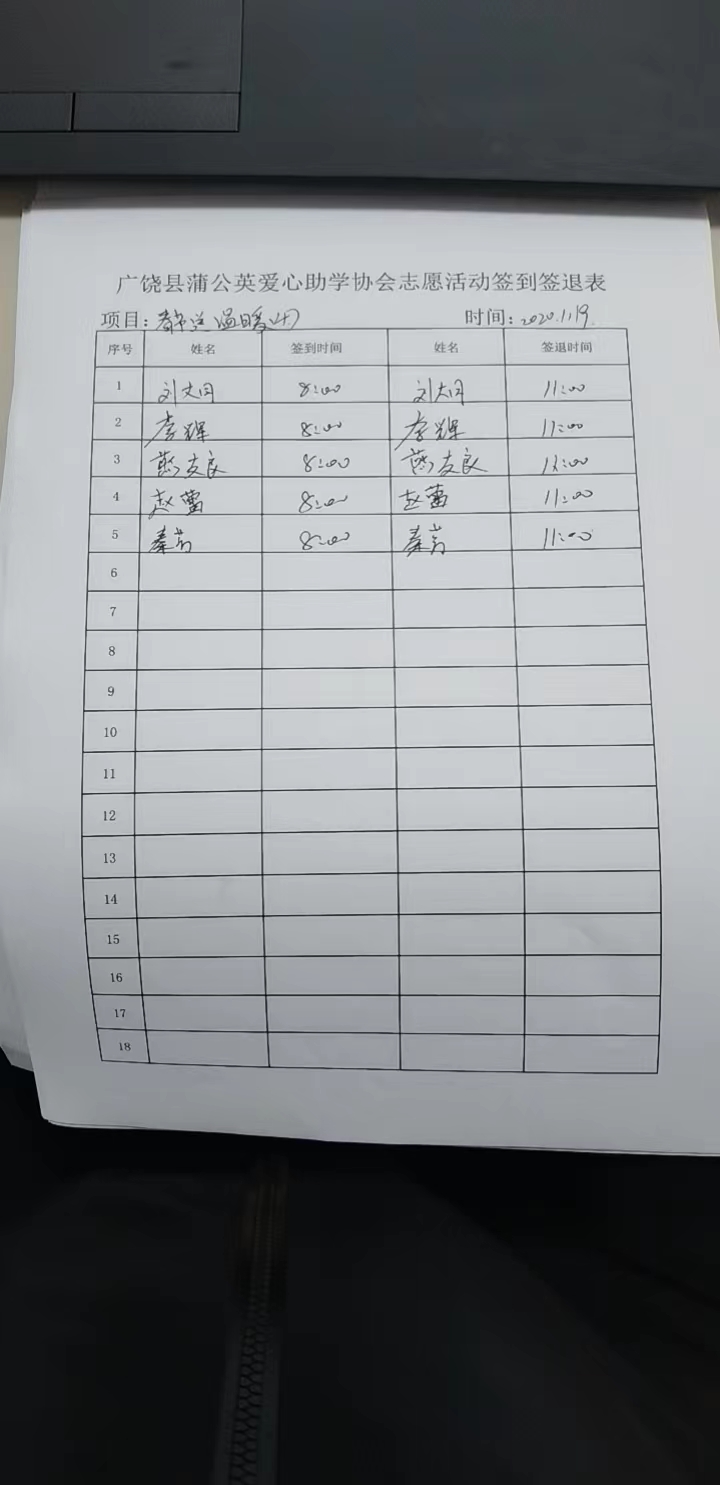 广饶县蒲公英爱心助学协会志愿活动签到签退表
项目: 春送温暖 时间: 2020.1.19.
序号 姓名 签到时间 姓名 签退时间
1 刘大同 8:00 刘大同 11:00
2 李辉 8:00 李辉 11:00
3 燕友良 8:00 燕友良 11:00
4 赵蕾 8:00 赵蕾 11:00
5 秦芳 8:00 秦芳 11:00
6
7
8
9
10
11
12
13
14
15
16
17
18